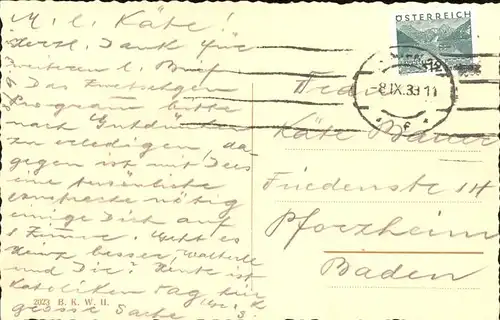 M. l. Käte!
Herzl. Dank für
weiteren l. Brief
Das Zwetschgen
Programm bitte
nach Gutdünken
zu erledigen, da-
gegen ist mit Dees
eine persönliche
nötig
einige Dich auf
1 Zimmer. Geht es
Heinz besser, Walterle
und Dir? Heute ist
Katholiken Tag hier
grosse Sache
2023 B. K. W. II.
ÖSTERREICH
8.IX.33 11
Käte Bauer
Friedenstr 14
Pforzheim
Baden